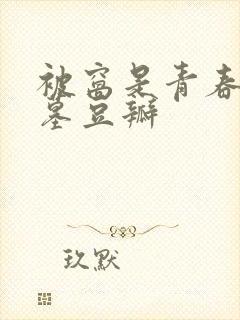 被窝是青春
墓豆瓣
玖默